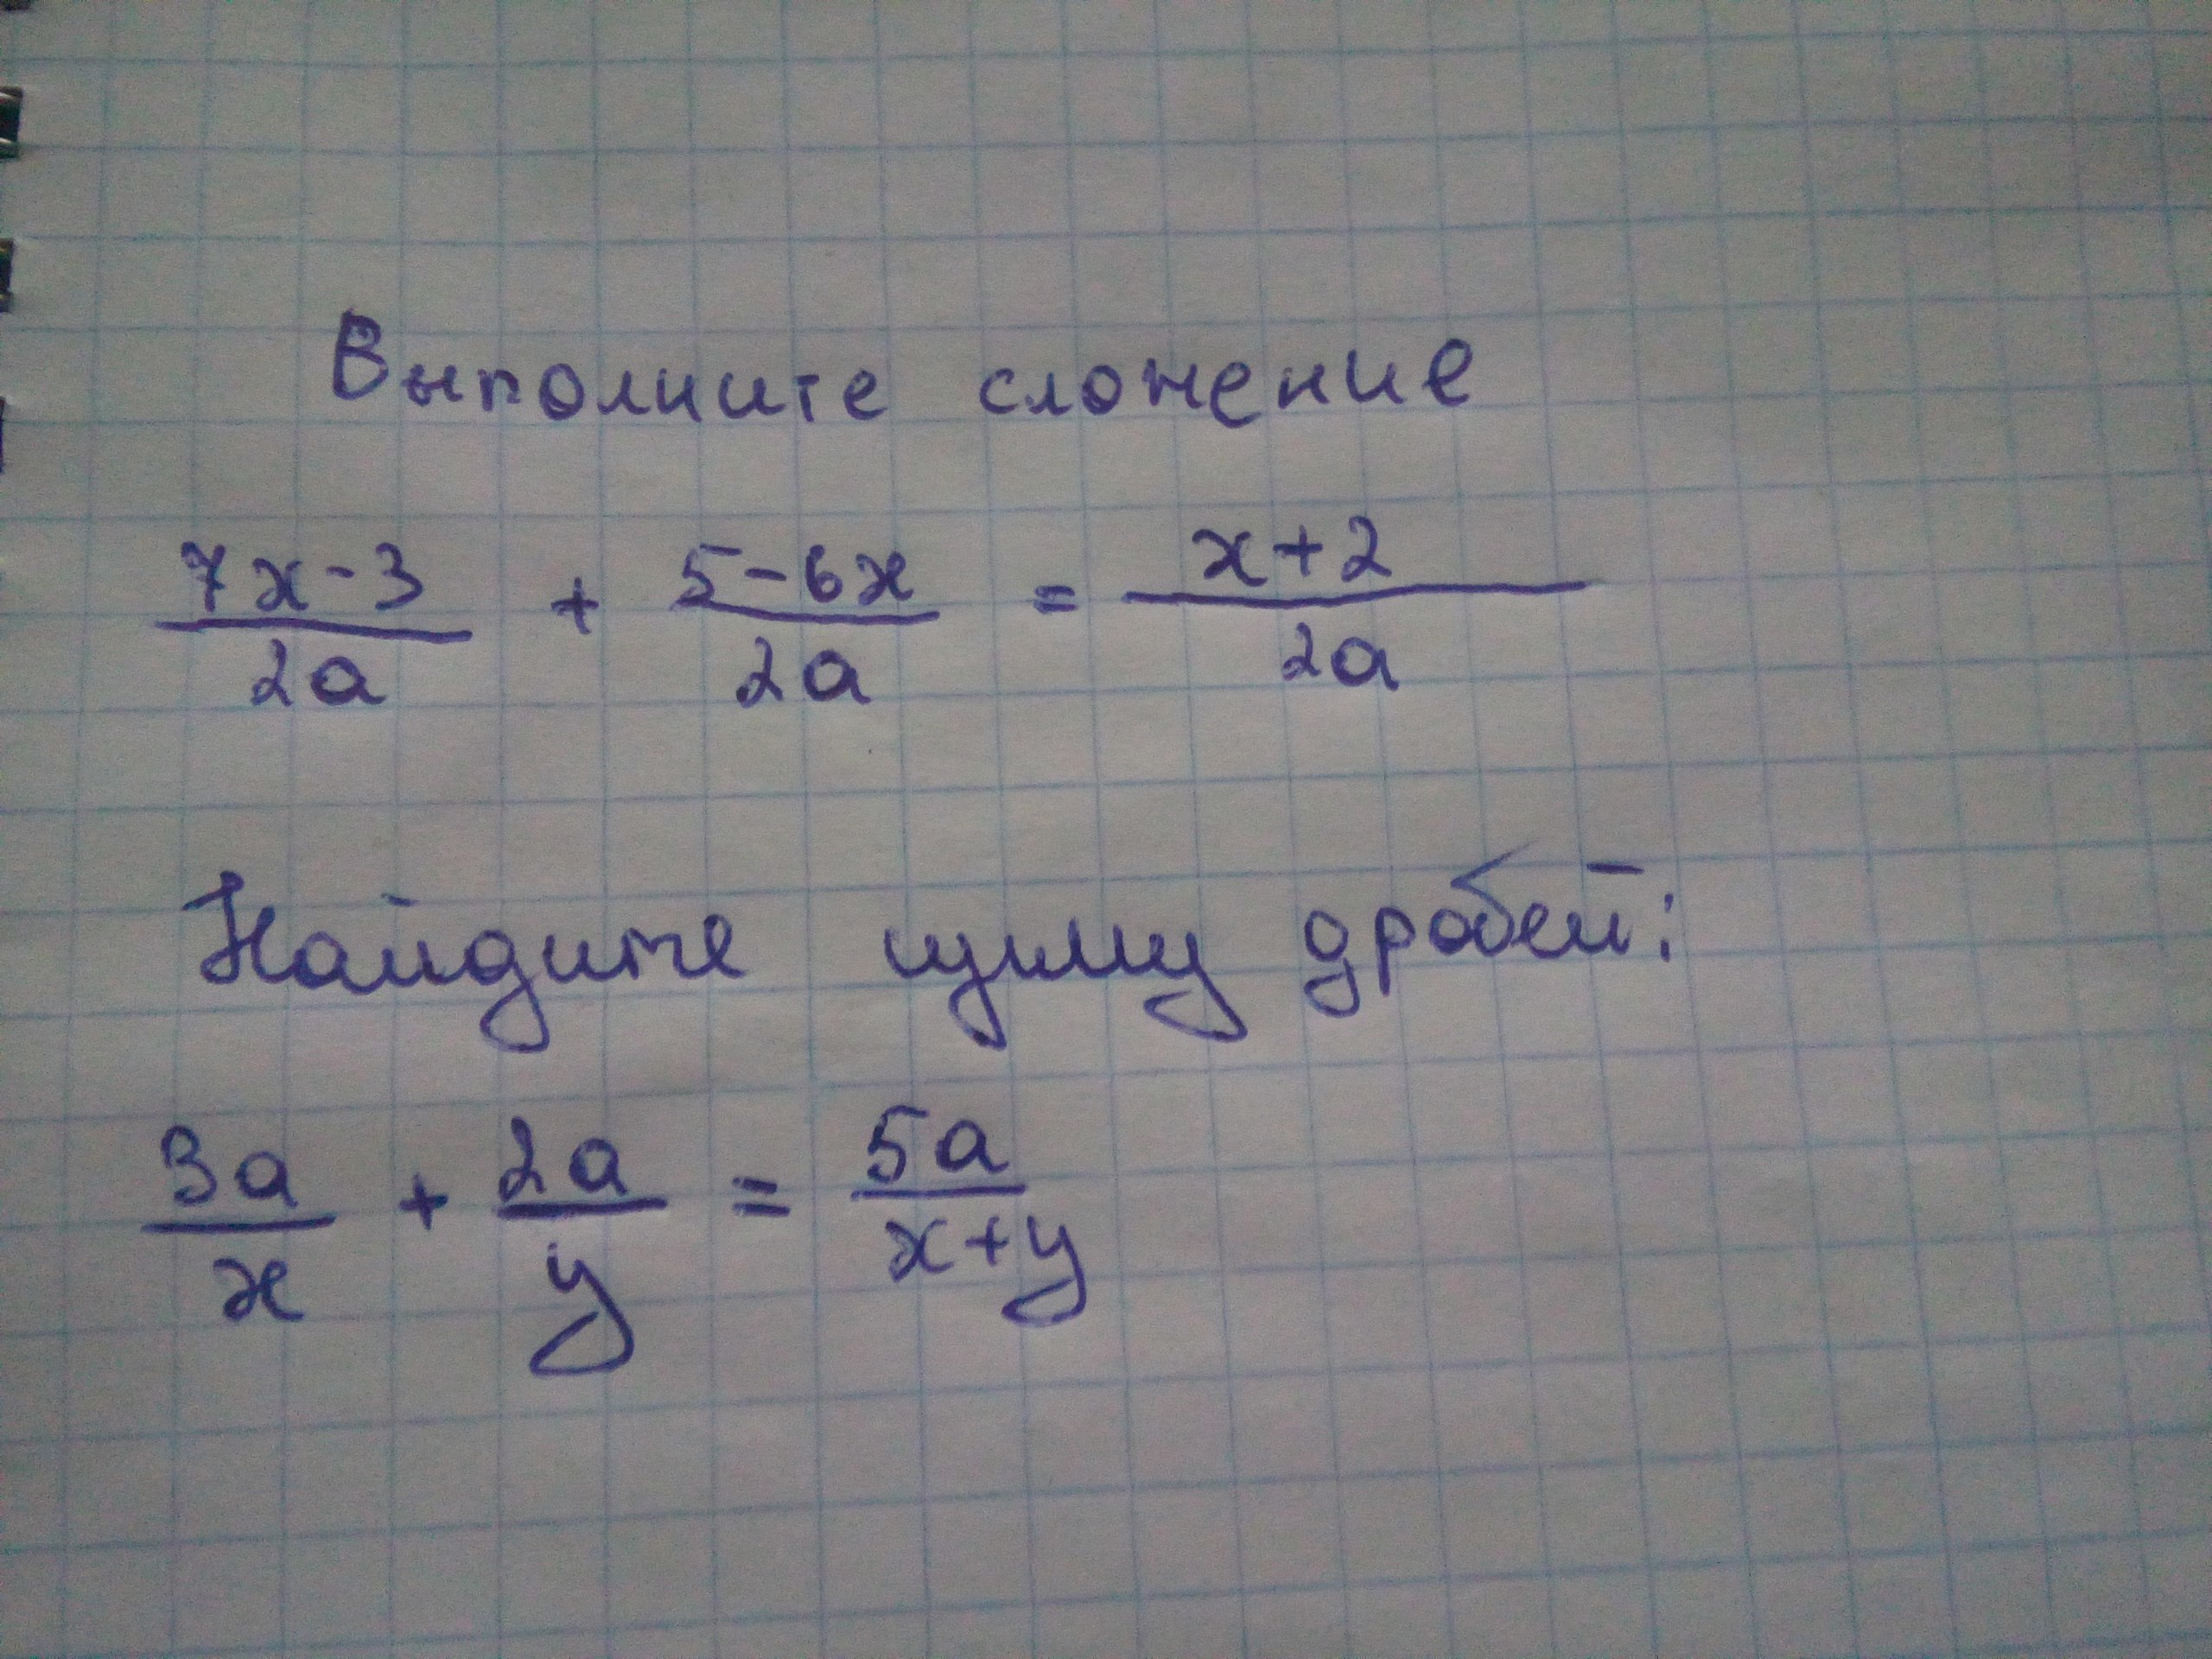 Выполните сложение
(7x-3)/(2a) + (5-6x)/(2a) = (x+2)/(2a)
Найдите сумму дробей:
3a/x + 2a/y = 5a/(x+y)